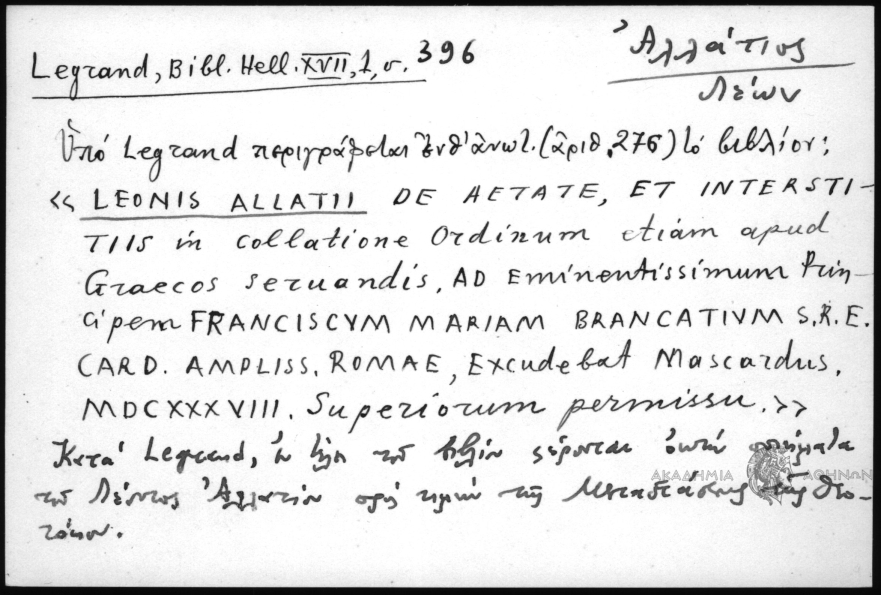 Legrand, Bibl. Hell. XVII, 1, σ. 396
Ἀλλάτιος
Λέων
Ὑπό Legrand περιγράφεται ἐνθ' ἀνωτ. (ἀριθ. 276) τό βιβλίον:
«LEONIS ALLATII DE AETATE, ET INTERSTI-
TIIS in collatione Ordinum etiam apud
Graecos seruandis, AD Eminentissimum Prin-
cipem FRANCISCVM MARIAM BRANCATIVM S.R.E.
CARD. AMPLISS. ROMAE, Excudebat Mascardus.
MDCXXXVIII. Superiorum permissu.»
Κατά Legrand, ἐν τέλει τοῦ βιβλίου φέρονται ποιήματα
τοῦ Λέοντος Ἀλλατίου πρός τιμήν τῆς Μεταστάσεως τῆς Θεο-
τόκου.
ΑΚΑΔΗΜΙΑ ΑΘΗΝΩΝ